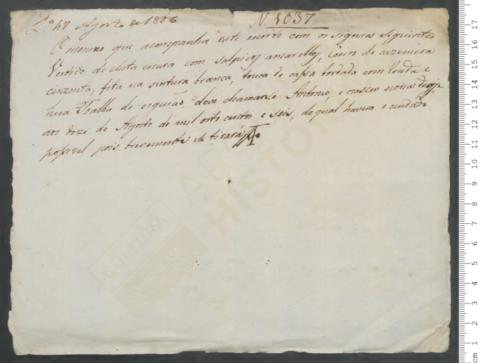 Lº 48 Agosto de 1806 N. 1037
O menino que acompanha este escrito com os signaes seguintes
Vestido de chita escura com salpicos amarellos,
cinzenta, fita na sintura branca, touca de cassa bordada com renda e
hua Toalha de deve chamarse Antonio, e nasceo
aos doze de Agosto de mil oito centos e seis, do qual havera o cuidado
possivel pois brevemente se tirará